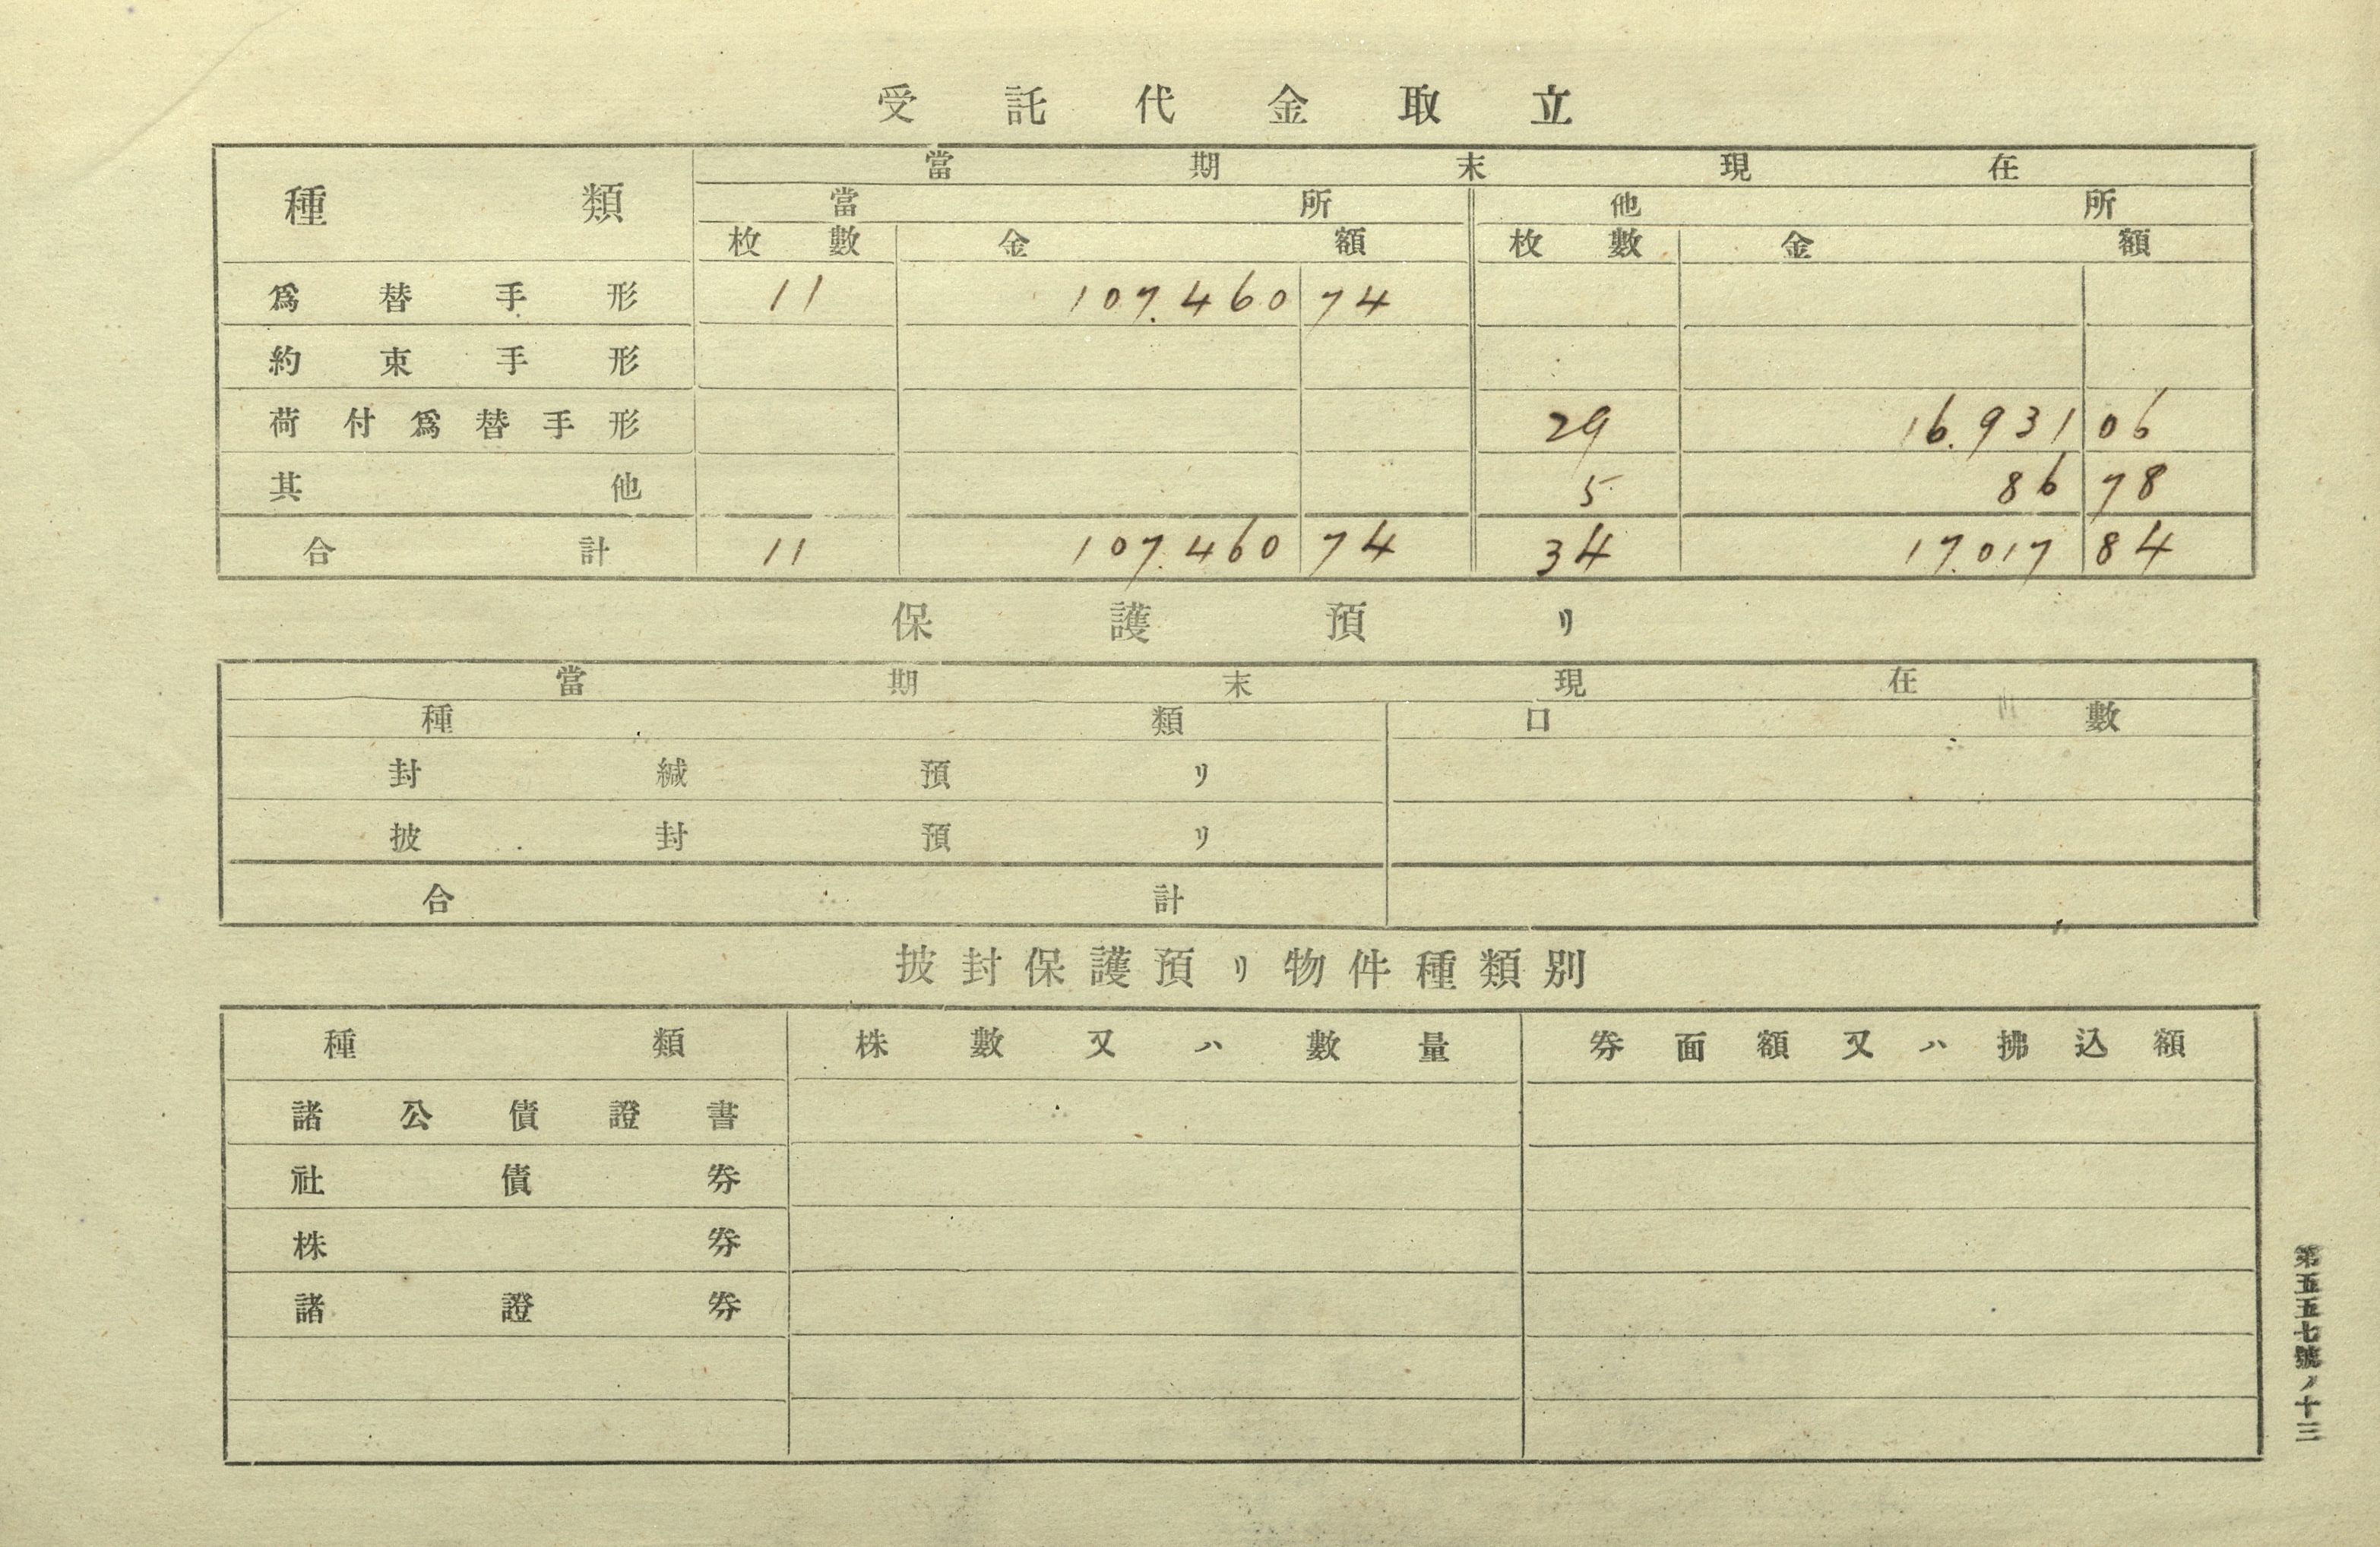 受託代金取立
種類 當期末現在
當所 他所
枚數 金額 枚數 金額
爲替手形 11 107.460 74
約束手形
荷付爲替手形 29 16.931 06
其他 5 86 78
合計 11 107.460 74 34 17.017 84
保護預リ
當期末現在
種類 口數
封緘預リ
披封預リ
合計
披封保護預リ物件種類別
種類 株數又ハ數量 券面額又ハ拂込額
諸公債證書
社債券
株券
諸證券
第五五七號ノ十三